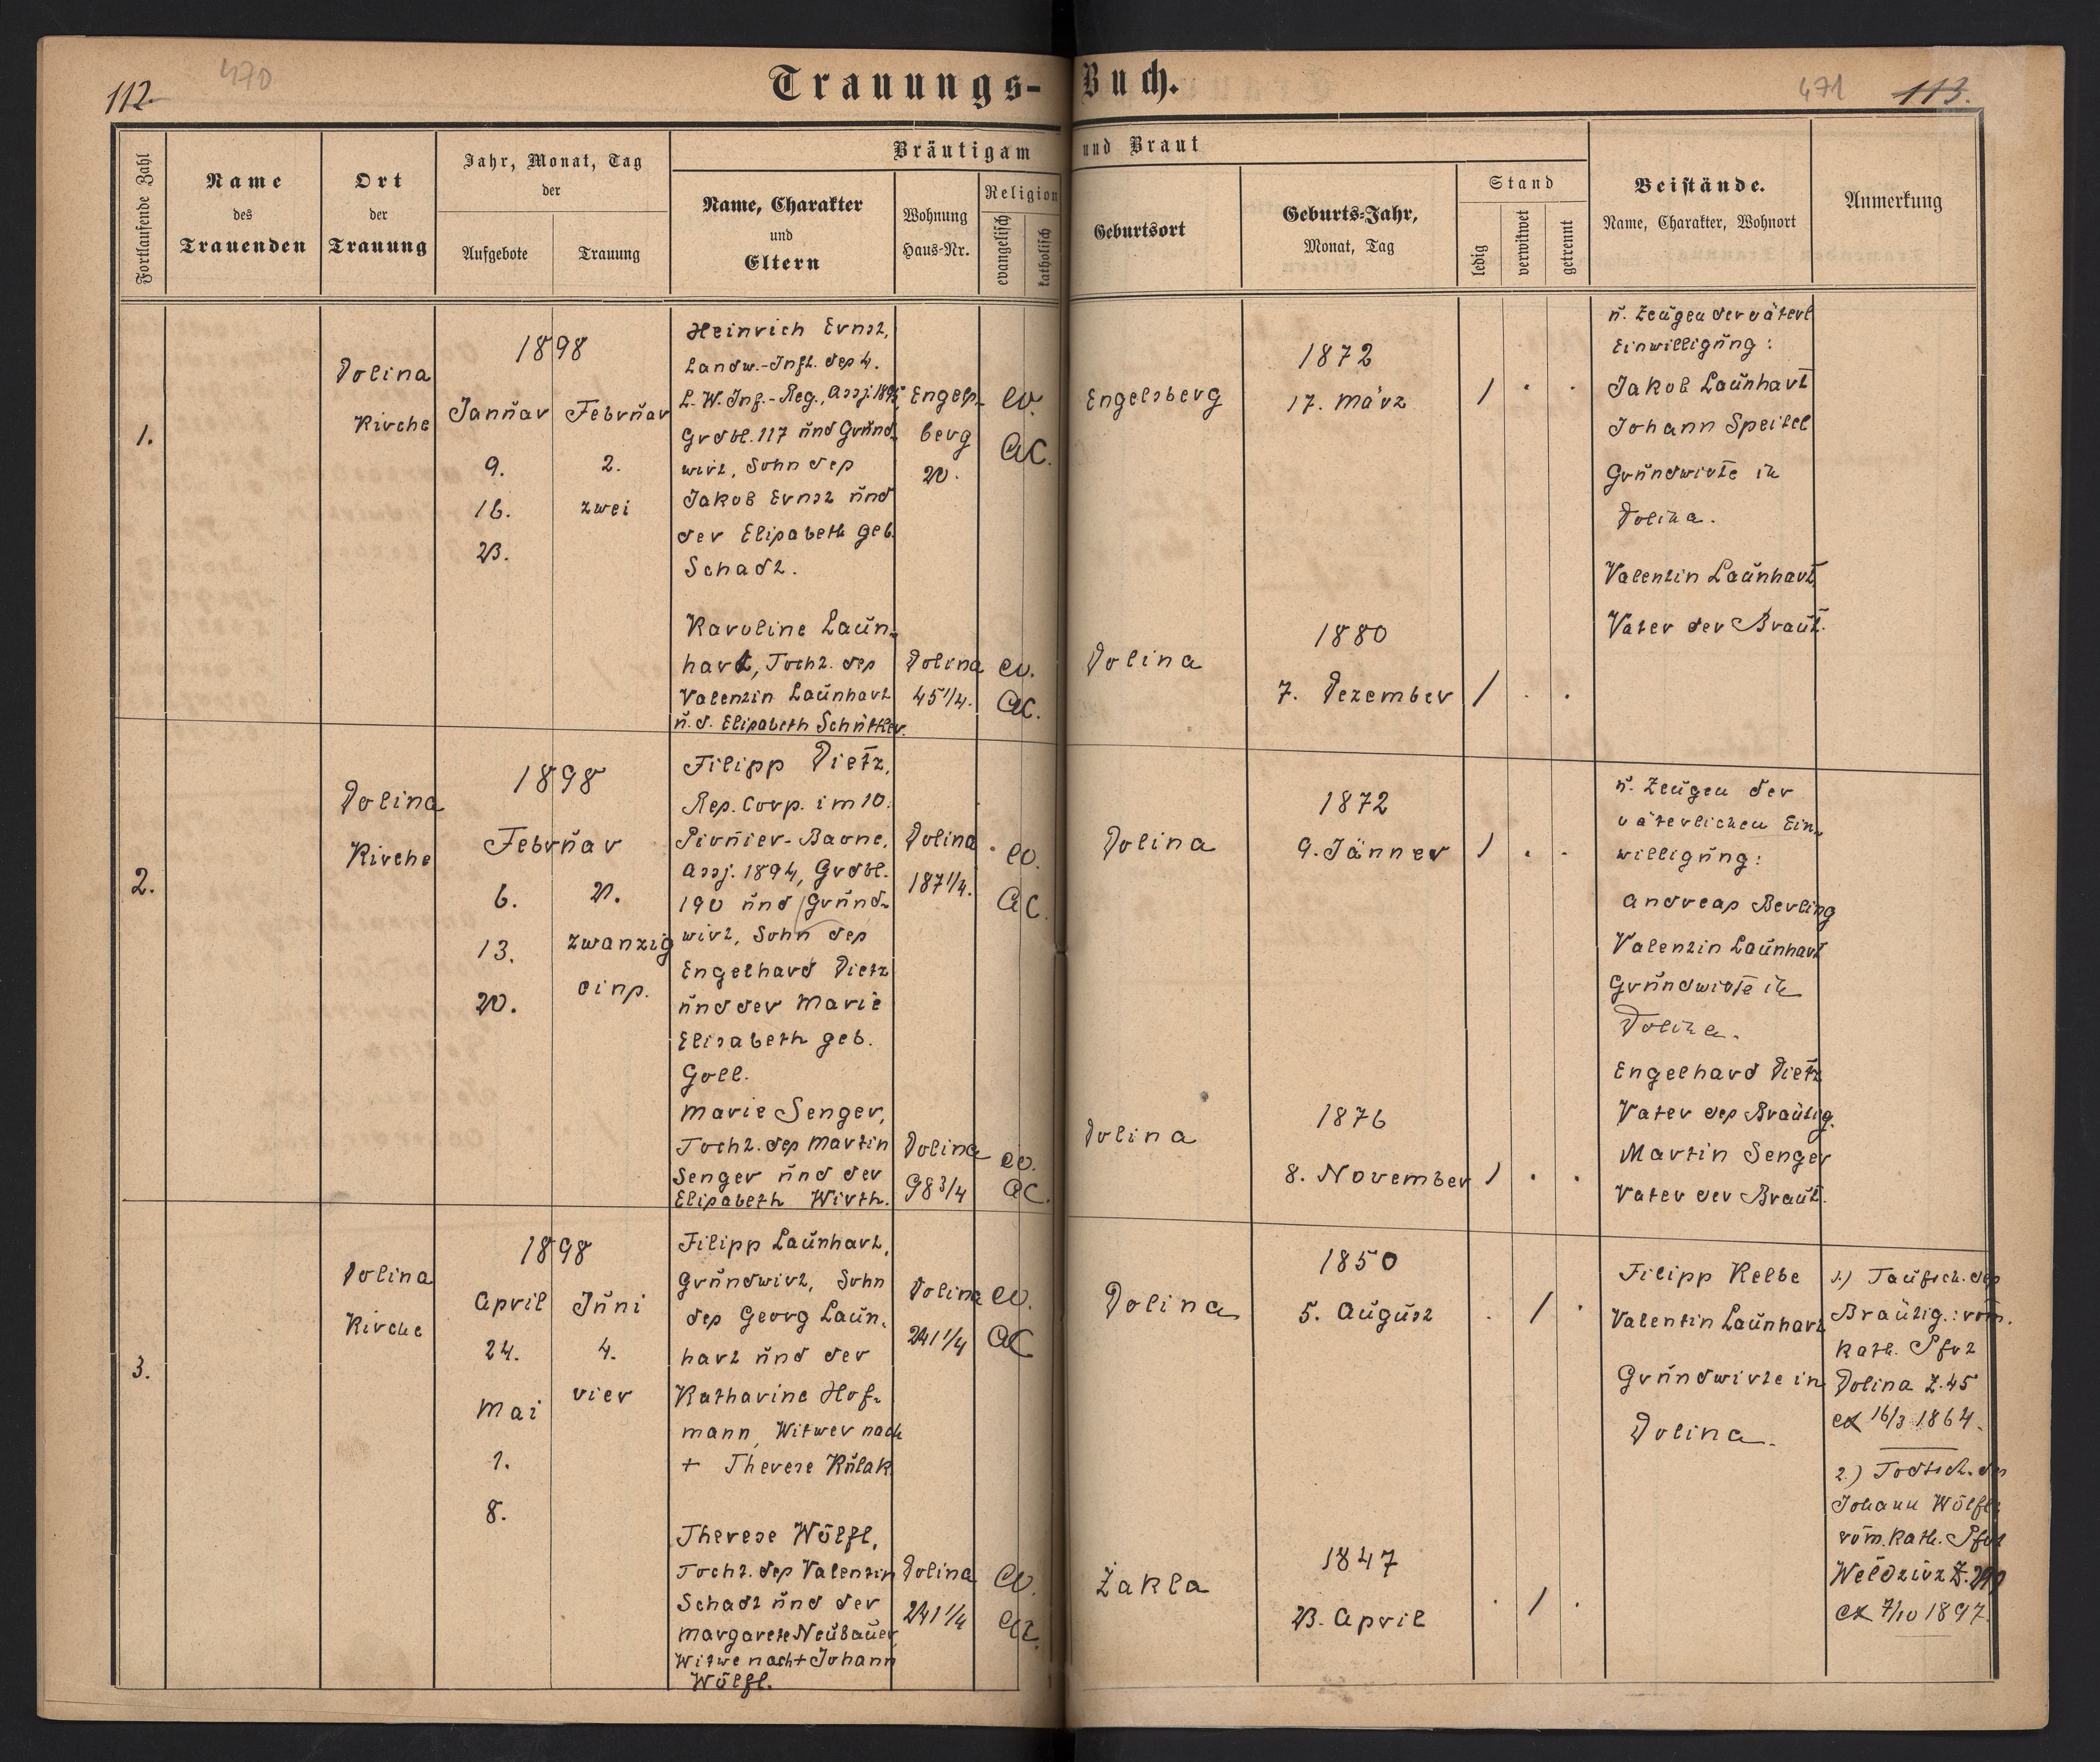 112.
470
Trauungs-Buch.
471
113.
Fortlaufende Zahl
Name
des
Trauenden
Ort
der
Trauung
Jahr, Monat, Tag
der
Aufgebote
Trauung
Bräutigam und Braut
Name, Charakter
und
Eltern
Wohnung
Haus-Nr.
Religion
evangelisch
katholisch
Geburtsort
Geburts-Jahr,
Monat, Tag
Stand
ledig
verwitwet
getrennt
Beistände.
Name, Charakter, Wohnort
Anmerkung
1.
Dolina
Kirche
1898
Januar
9.
16.
23.
Februar
2.
zwei
Heinrich Ernst,
Landw.-Inft. des 4.
L. W. Inf.-Reg., Assj. 1895,
Grdbl. 117 und Grund-
wirt, Sohn des
Jakob Ernst und
der Elisabeth geb.
Schadt.
Engels-
berg
20.
ev.
AC.
Engelsberg
1872
17. März
/ . .
u. Zeugen der väterl
Einwilligung:
Jakob Launhart
Johann Speitel
Grundwirte in
Dolina.
Valentin Launhart
Vater der Braut.
Karoline Laun-
hart, Tocht. des
Valentin Launhart
u. d. Elisabeth Schüttler.
Dolina
45 1/4.
ev.
AC.
Dolina
1880
7. Dezember
/ . .
2.
Dolina
Kirche
1898
Februar
6.
13.
20.
21.
zwanzig
eins.
Filipp Dietz,
Res. Corp. im 10.
Pionier-Baone,
Assj. 1894, Grdbl.
190 und Grund-
wirt, Sohn des
Engelhard Dietz
und der Marie
Elisabeth geb.
Goll.
Dolina
187 1/4.
ev.
AC.
Dolina
1872
9. Jänner
/ . .
u. Zeugen der
väterlichen Ein-
willigung:
Andreas Berling
Valentin Launhart
Grundwirte in
Dolina.
Engelhard Dietz
Vater des Bräutig.
Martin Senger
Vater der Braut.
Marie Senger,
Tocht. des Martin
Senger und der
Elisabeth Wirth.
Dolina
98 3/4
ev.
AC.
Dolina
1876
8. November
/ . .
3.
Dolina
Kirche
1898
April
24.
Mai
1.
8.
Juni
4.
vier
Filipp Launhart,
Grundwirt, Sohn
des Georg Laun-
hart und der
Katharine Hof-
mann, Witwer nach
+ Therese Kulak.
Dolina
241 1/4
ev.
AC
Dolina
1850
5. August
. / .
Filipp Kelbe
Valentin Launhart
Grundwirte in
Dolina.
1.) Taufsch. des
Bräutig.: röm.
kath. Pfrt
Dolina Z. 45
ex 16/3 1864.
2.) Todtsch. des
Johann Wölfl:
röm. kath. Pfrt
Weldzirz Z.
ex 7/10 1897.
Therese Wölfl,
Tocht. des Valentin
Schadt und der
Margarete Neubauer,
Witwe nach + Johann
Wölfl.
Dolina
241 1/4
ev.
Zakla
1847
23. April
. / .